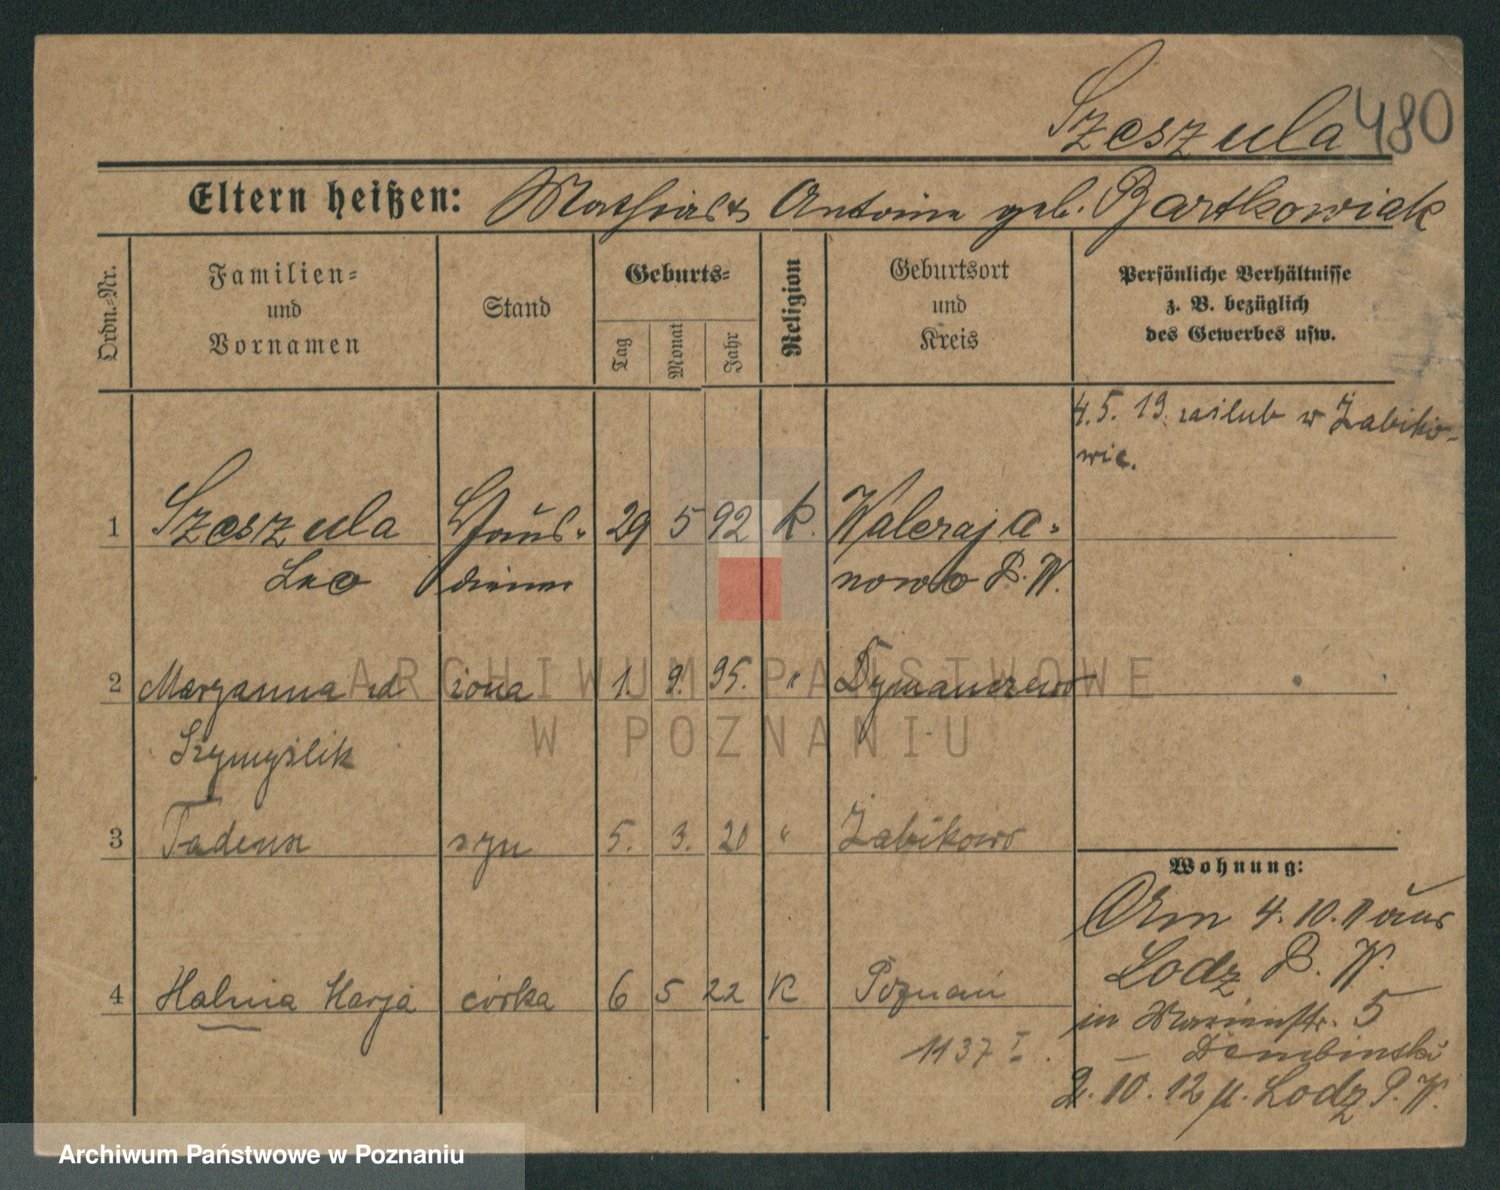 Szeszula 480
Eltern heißen: Mathias & Antonie geb. Bartkowiak
Ordn.-Nr.
Familien-
und
Vornamen
Stand
Geburts-
Tag
Monat
Jahr
Religion
Geburtsort
und
Kreis
Persönliche Verhältnisse
z. B. bezüglich
des Gewerbes usw.
4.5.19. zaślub w Żabiko-
wie.
1 Szeszula Haus- 29 5 92 K. Waleryja-
Leo diener nowo P. W.
2 Maryanna zd żona 1. 9. 95. " Dymaczewo
Szymyślik
3 Tadeusz syn 5. 3. 20 " Żabikowo
4 Halina Marja córka 6 5 22 K Poznań
1137 I.
Wohnung:
Am 4.10.11 aus
Lodz P. W.
in Marienstr. 5
Dembinski
2.10.12 n. Lodz P. W.
ARCHIWUM PAŃSTWOWE
W POZNANIU
Archiwum Państwowe w Poznaniu